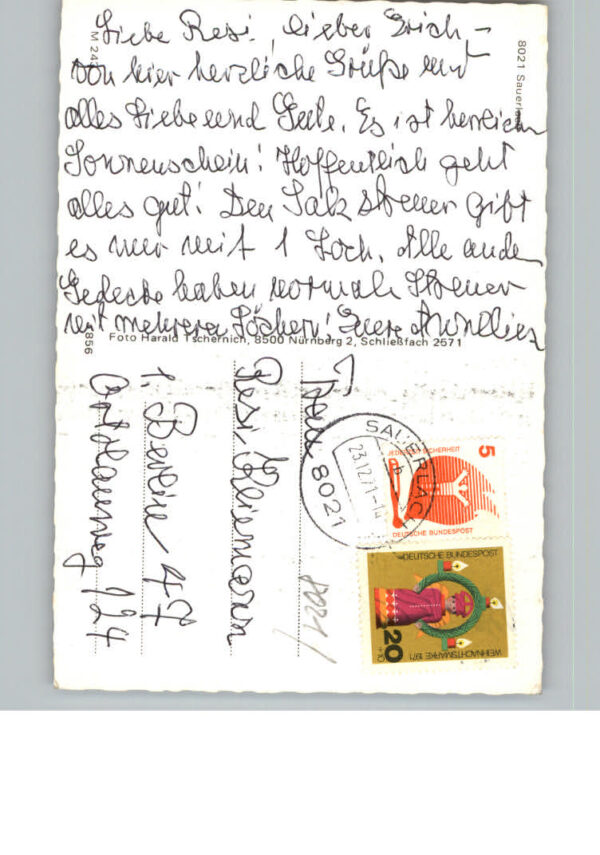 Liebe Resi, lieber Erich –
von hier herzliche Grüße und
alles Liebe und Gute. Es ist herrlich
Sonnenschein! Hoffentlich geht
alles gut! Den Salzstreuer gibt
es nur mit 1 Loch. Alle anden
Gedecke haben normale Streuer
mit mehreren Löchern! Eure
M 24
8021 Sauerl
856
Foto Harald Tschernich, 8500 Nürnberg 2, Schließfach 2571
Frau
Resi Kliemann
1 Berlin 47
124
8021 SAUERLACH
23.12.71-14
b
JEDERZEIT SICHERHEIT
5
DEUTSCHE BUNDESPOST
DEUTSCHE BUNDESPOST
20
+10
WEIHNACHTSMARKE 1971